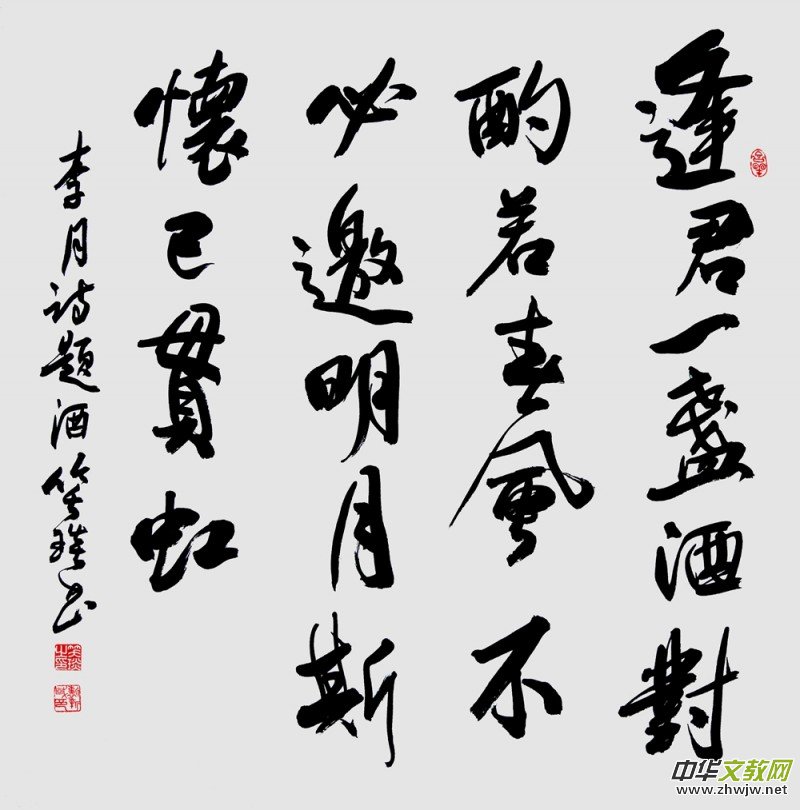 逢君一盞酒對
酌若春風不
必邀明月斯
懷已貫虹
李月詩題酒笑琰书
中华文教网
www.zhwjw.net